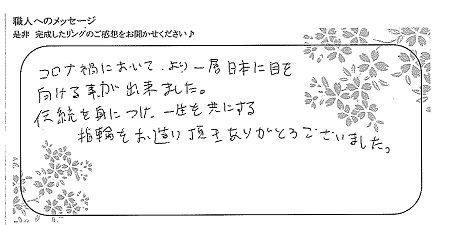 職人へのメッセージ
是非 完成したリングのご感想をお聞かせください♪
コロナ禍において、より一層日本に目を
向ける事が出来ました。
伝統を身につけ、一生を共にする
指輪をお造り頂きありがとうございました。